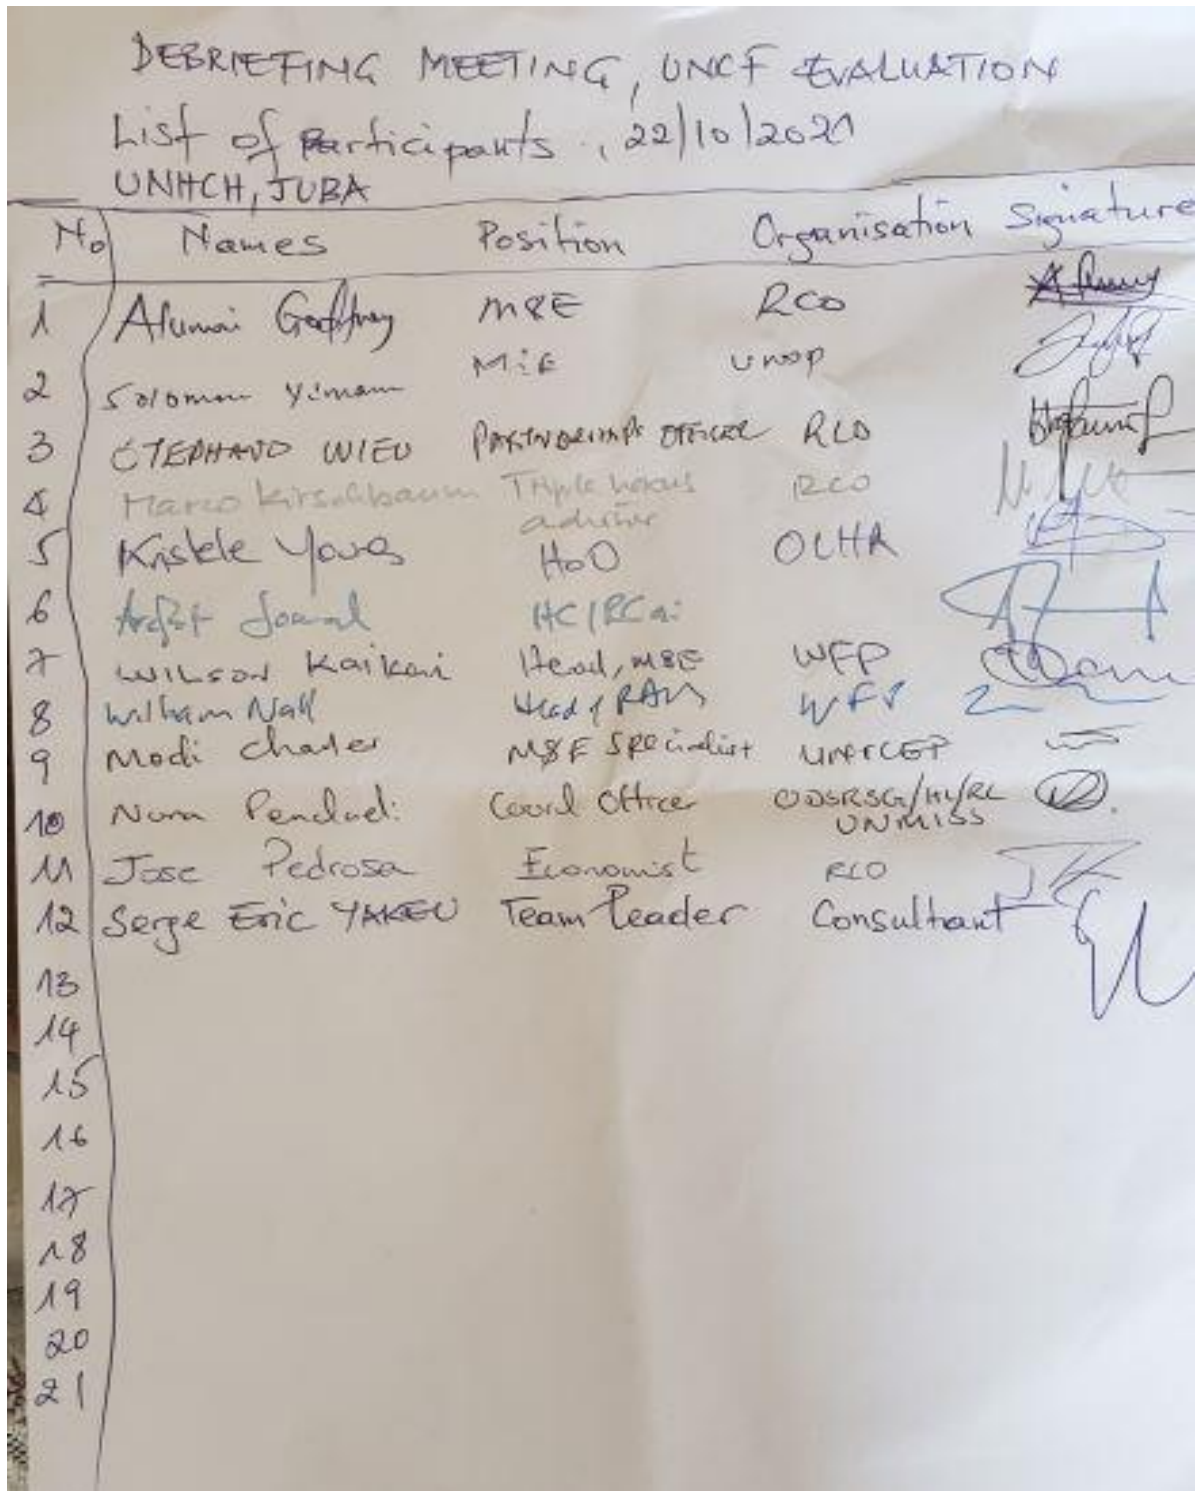 DEBRIEFING MEETING, UNCF EVALUATION
List of Participants, 22/10/2021
UNHCH, JUBA
No Names Position Organisation Signature
1 Alumai Geoffrey M&E RCO
2 Solomon Yimam M&E unop
3 STEPHANO WIEU PARTNERSHIPS OFFICER RCO
4 Marco Kirschbaum Triple nexus RCO
adviser
5 Kristele Younes HoO OCHA
6 HC/RC ai
7 WILSON Kaikai Head, M&E WFP
8 William Nall Head of RAM WFP
9 Modi Charles M&E Specialist UNICEF
10 Coord Officer ODSRSG/HC/RC
UNMISS
11 Jose Pedrosa Economist RCO
12 Serge Eric YAKEU Team Leader Consultant
13
14
15
16
17
18
19
20
21